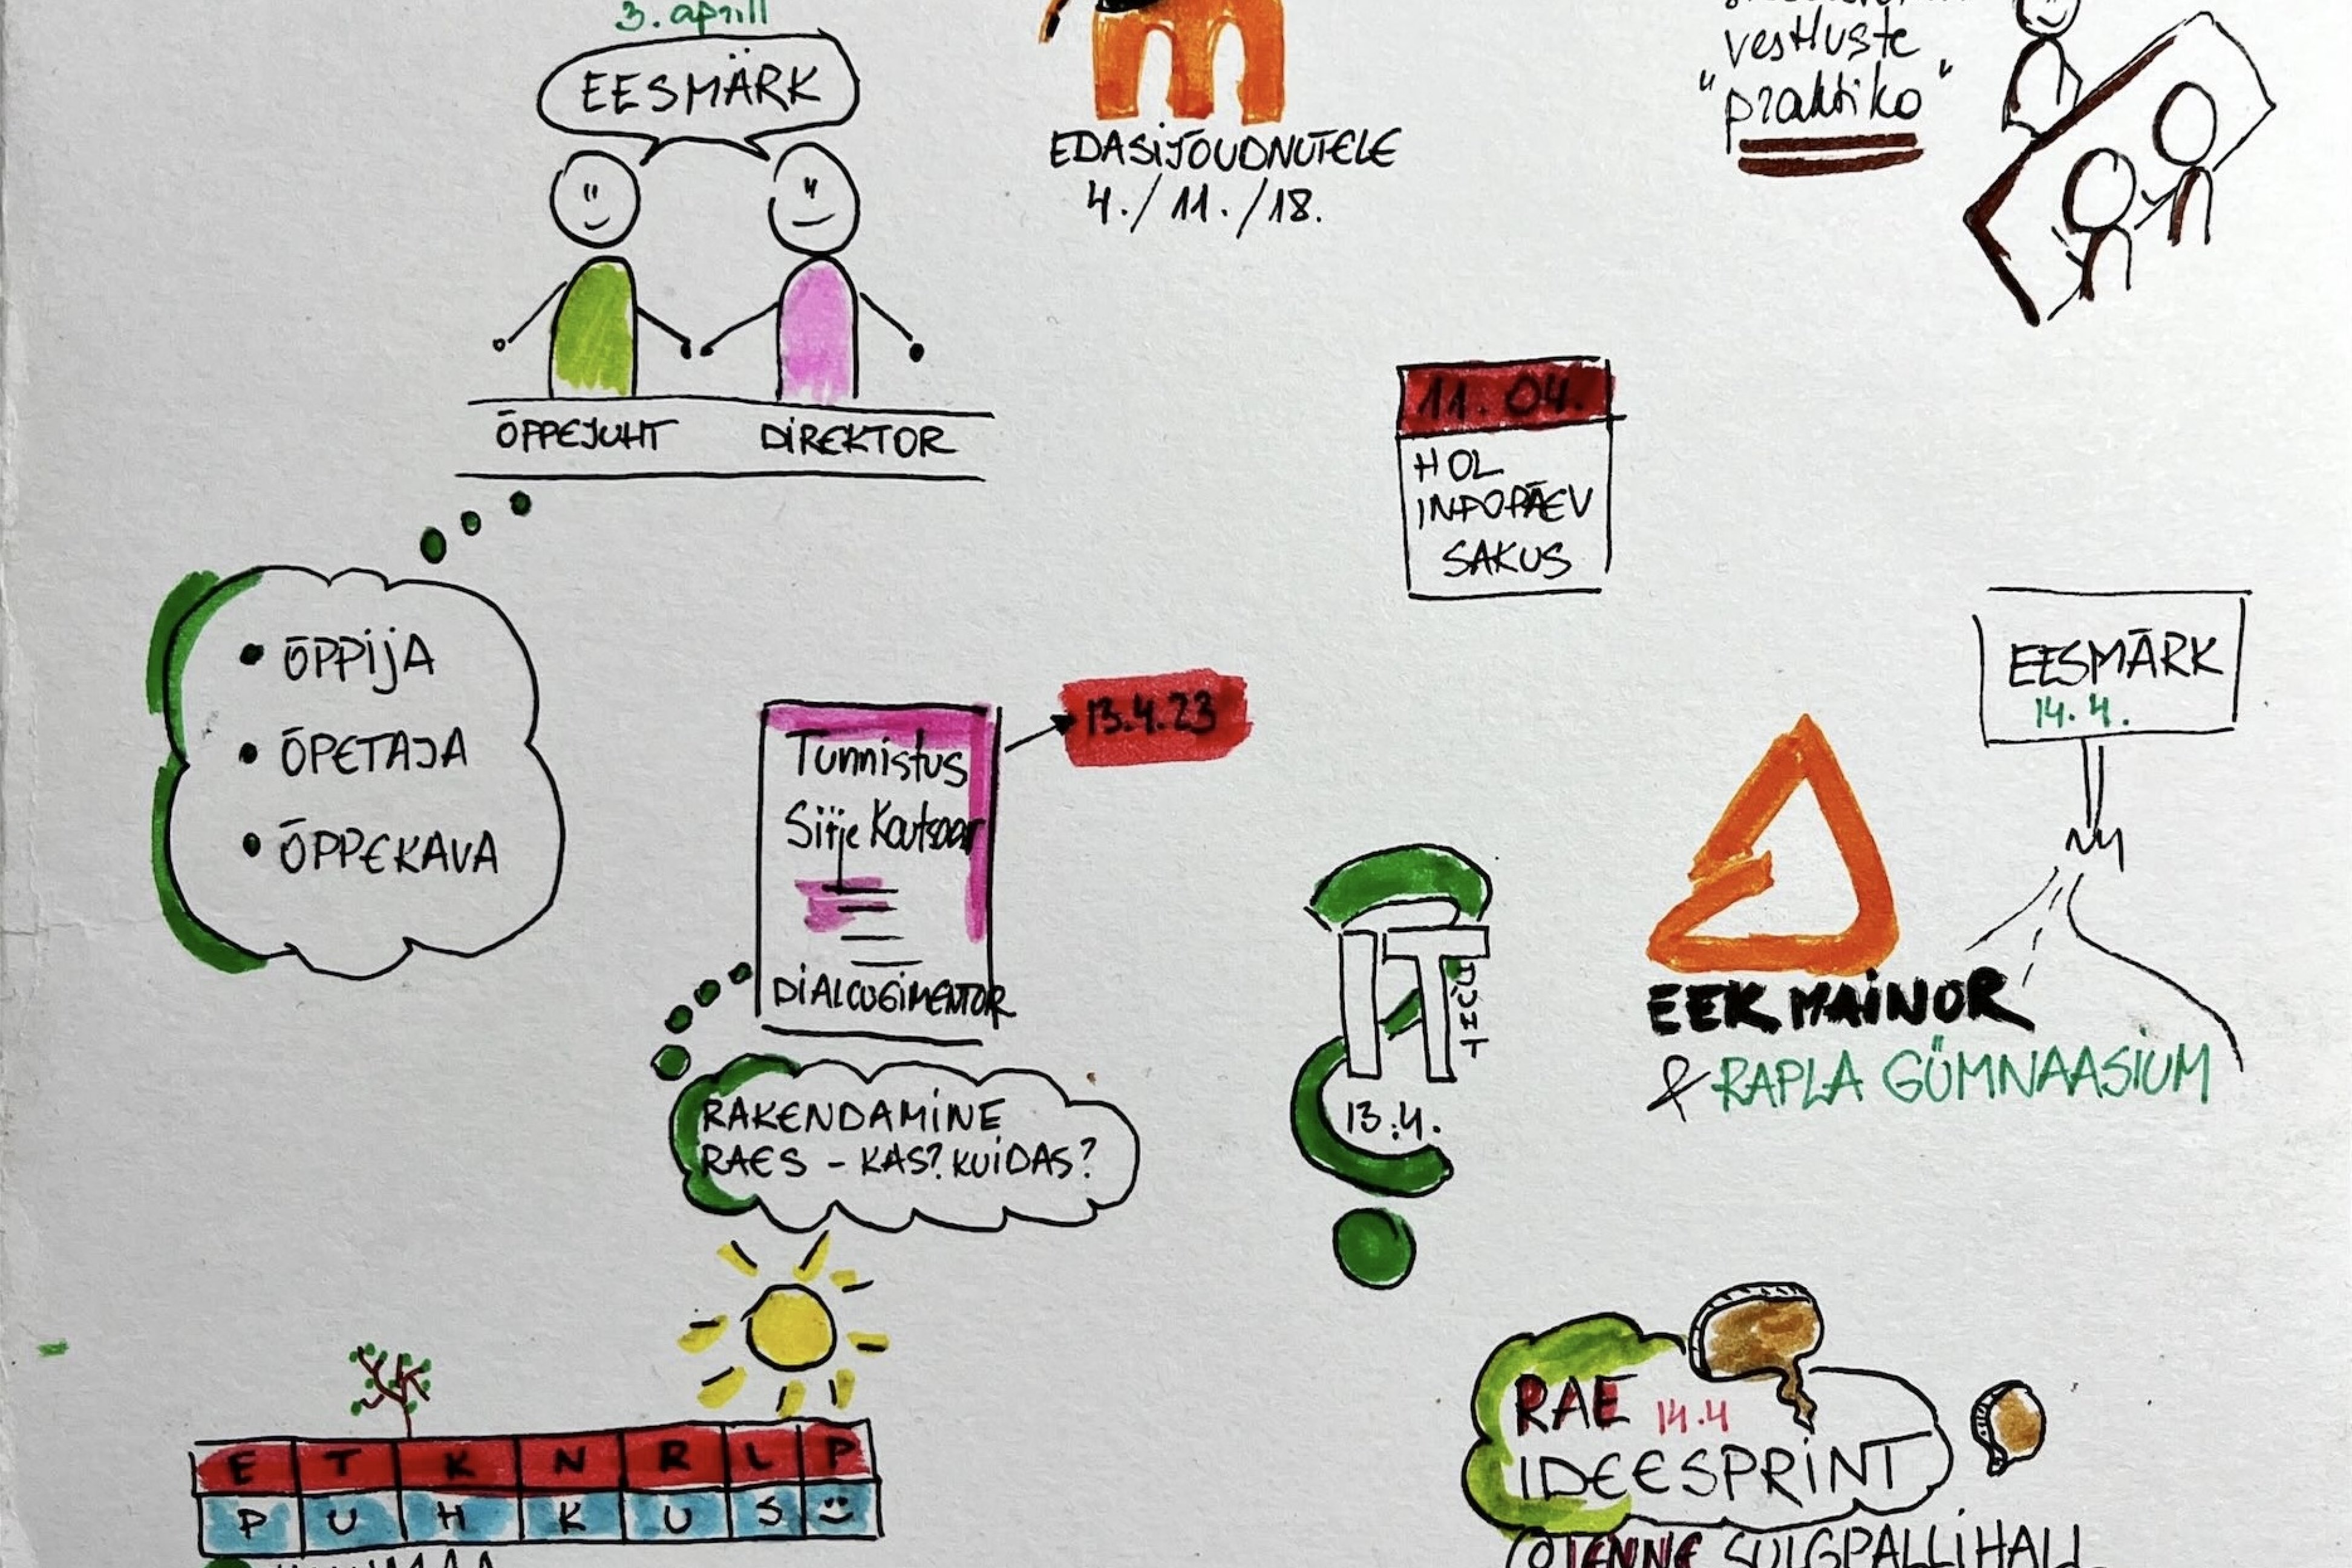 3. aprill
EESMÄRK
ÕPPEJUHT DIREKTOR
• ÕPPIJA
• ÕPETAJA
• ÕPPEKAVA
EDASIJÕUDNUTELE
4./11./18.
vestluste
"praktiko"
11.04.
HOL
INFOPÄEV
SAKUS
13.4.23
Tunnistus
Sirje
DIALOOGIMENTOR
RAKENDAMINE
RAES - KAS? KUIDAS?
IT
JUHT
13.4.
EESMÄRK
14.4.
EEK MAINOR
& RAPLA GÜMNAASIUM
E T K N R L P
P U H K U S
RAE 14.4
IDEESPRINT
SULGPALLIHALL